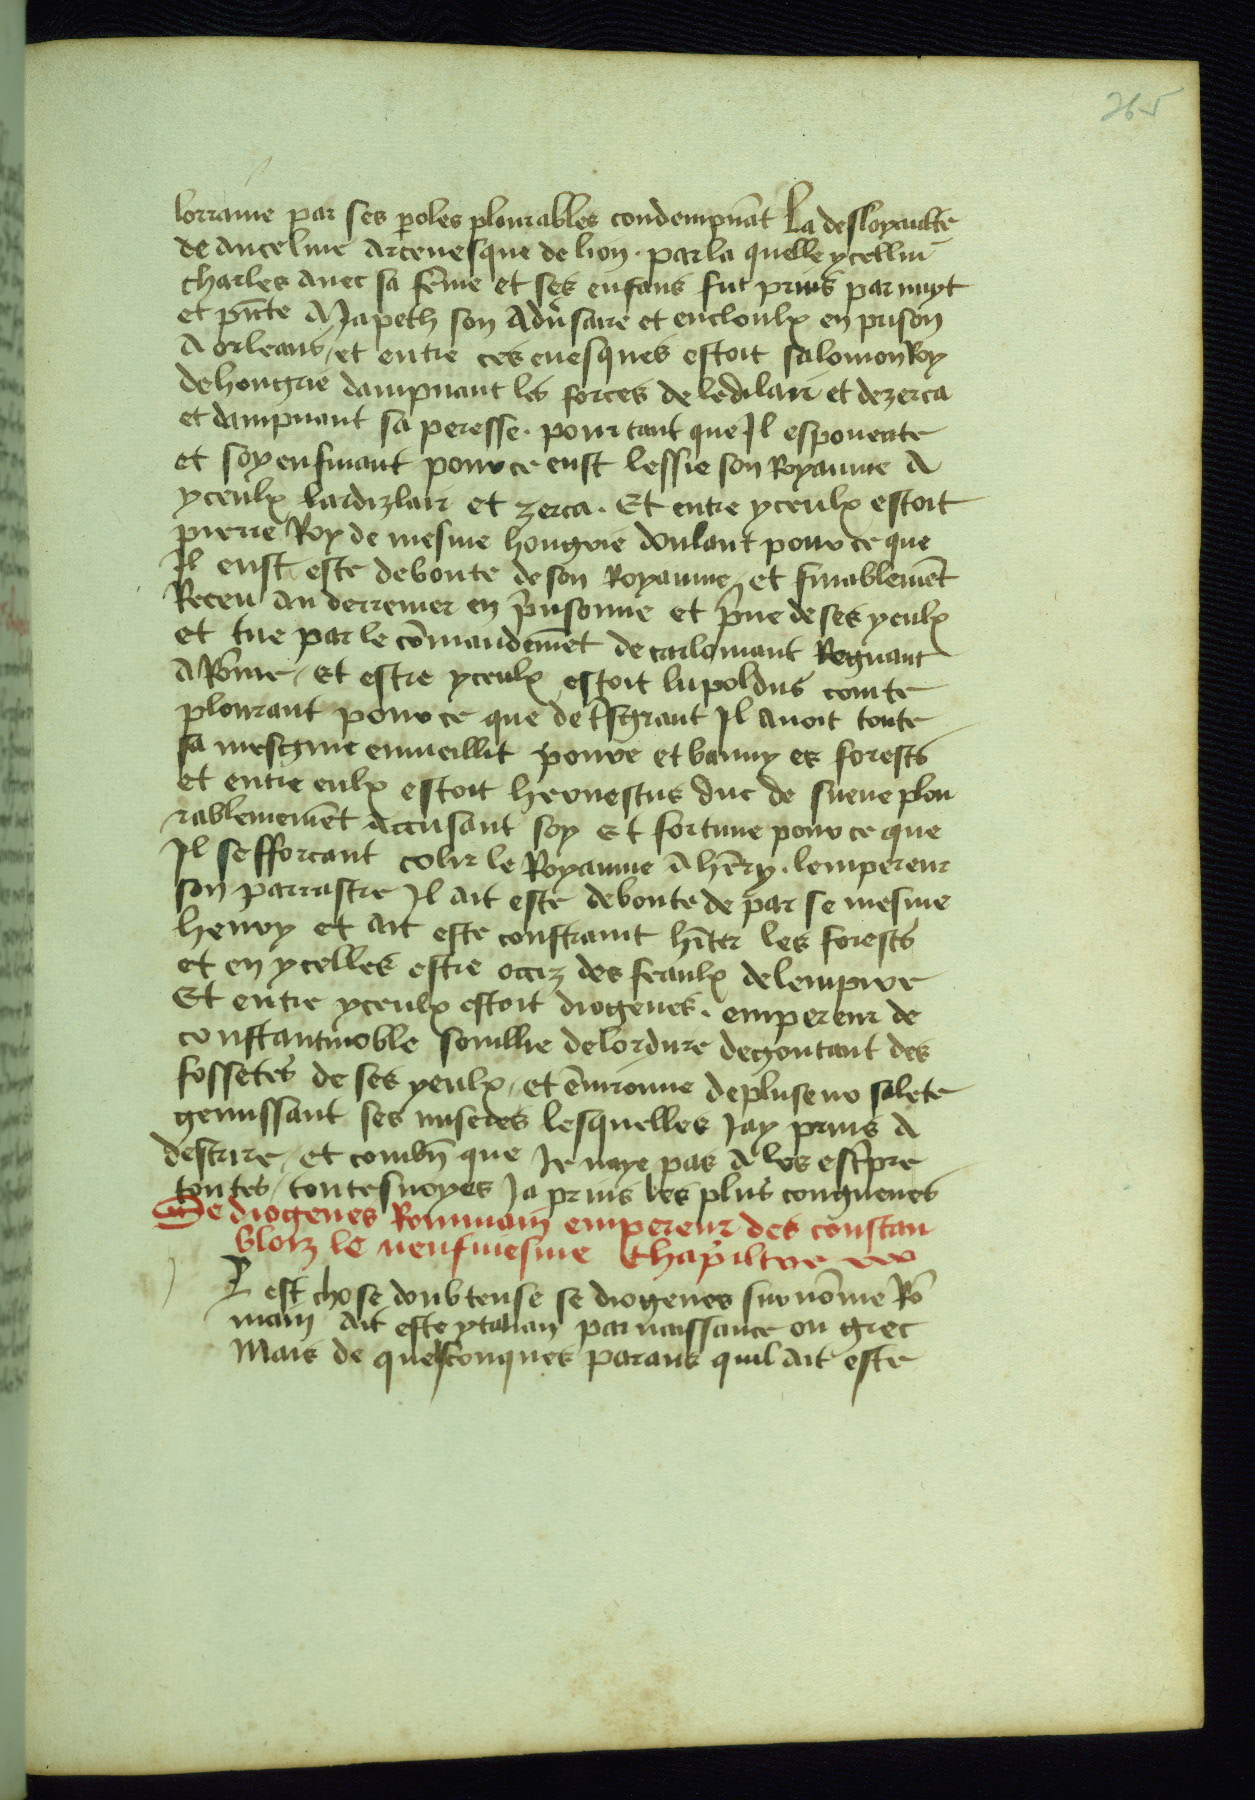 265
lorraine par ses ꝑoles plourables condempnãt La desloyaulte
de ancelme arcevesque de lion . par la quelle ycelluy
charles avec sa fẽme et ses enfans fut prins par nuyt
et pñte a Japeth son adũsaire et encloulx en prison
a orleans / et entre ces evesques estoit salomon Roy
de hongrie dampnant les forces de ledilan et de zerca
et dampnant sa peresse . pour tant que Il espovente
et soy enfuiant pour ce eust lessie son Royaume a
yceulx lardizlan et zerca . Et entre yceulx estoit
pierre Roy de mesme hongrie doulant pour ce que
Il eust este deboute de son Royaume / et finablemẽt
Receu au derrenier en p̃risonne et p̃ve de ses yeulx
et tue par le cõmandemẽt de carlomant Regnant
a Rõme / Et estre yceulx estoit lupoldus conte
plourant pour ce que de tresgrant Il avoit toute
sa mesgnie envieillit povre et banny es forests
et entre eulx estoit hernestus duc de sueve plou
rablemement accusant soy Et fortune pour ce que
Il sefforcant tolir le Royaume a hẽry . lempereur
son parrastre Il ait este deboute de par se mesme
henry et ait este constraint hĩter les forests
et en ycelles estre occiz des feaulx de lempire
Et entre yceulx estoit diogenes . empereur de
constantinoble soullie de lordure degoutant des
fossetes de ses yeulx / et ẽnvironne de pluseurs salete
gemissant ses miseres lesquelles Jay prins a
descrire / et combñ que Je naye pas a les escp̃re
toutes / toutesvoyes Ja prins les plus congneues
De diogenes Rommain empereur des constan
bloiz le neufviesme Chap̃iltre
Il est chose doubteuse se diogenes surnõme Rõ
main ait este ytalian par naissance ou grec
Mais de quelsconques parans quil ait este